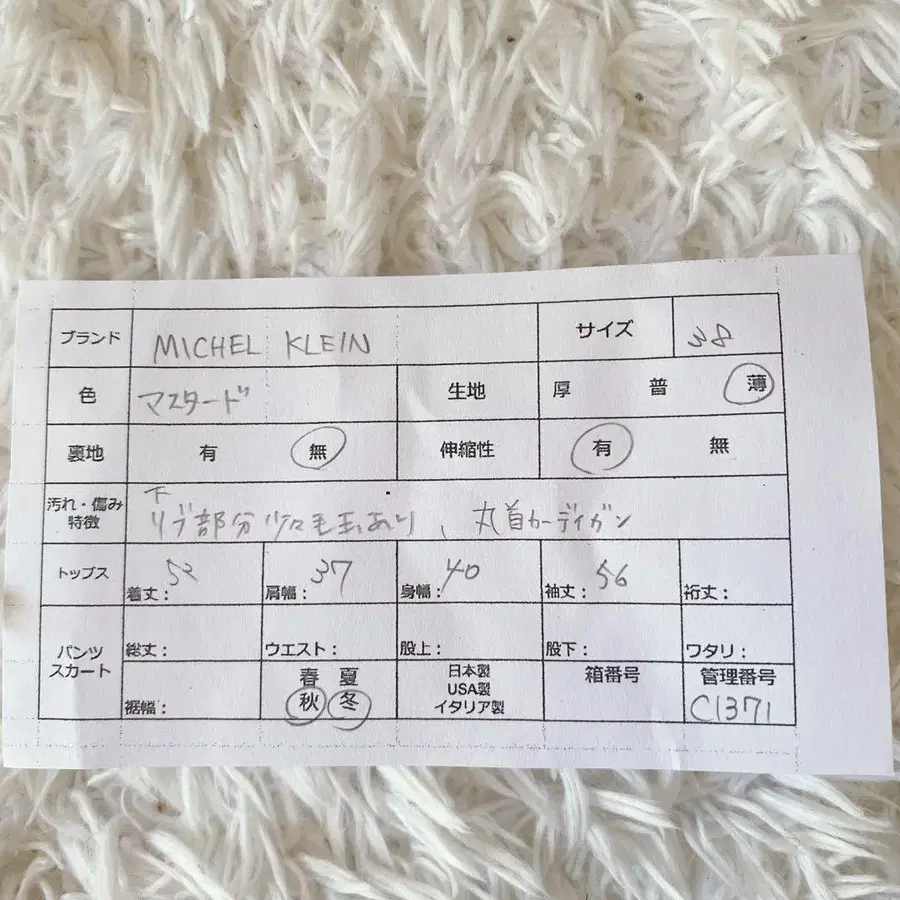 ブランド MICHEL KLEIN サイズ 38
色 マスタード 生地 厚 普 薄
裏地 有 無 伸縮性 有 無
汚れ・傷み
特徴
下
リブ部分少々毛玉あり、丸首カーディガン
トップス 着丈: 52 肩幅: 37 身幅: 40 袖丈: 56 裄丈:
パンツ
スカート
総丈: ウエスト: 股上: 股下: ワタリ:
裾幅:
春 夏
秋 冬
日本製
USA製
イタリア製
箱番号
管理番号
C1371